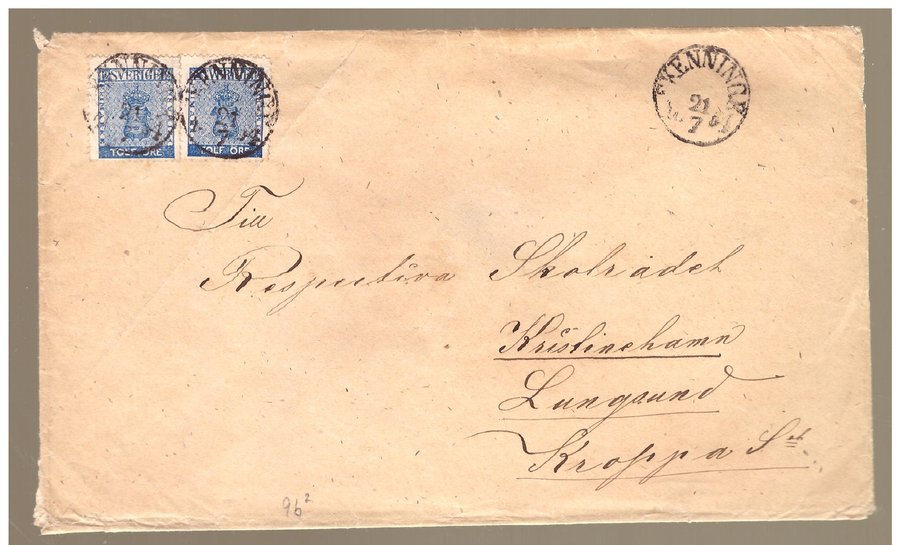 SVERIGE
TOLF ÖRE
SVERIGE
TOLF ÖRE
21
7
Till
Respectiva Skolrådet
Kristinehamn
Lungsund
Kroppa Sn
9b²